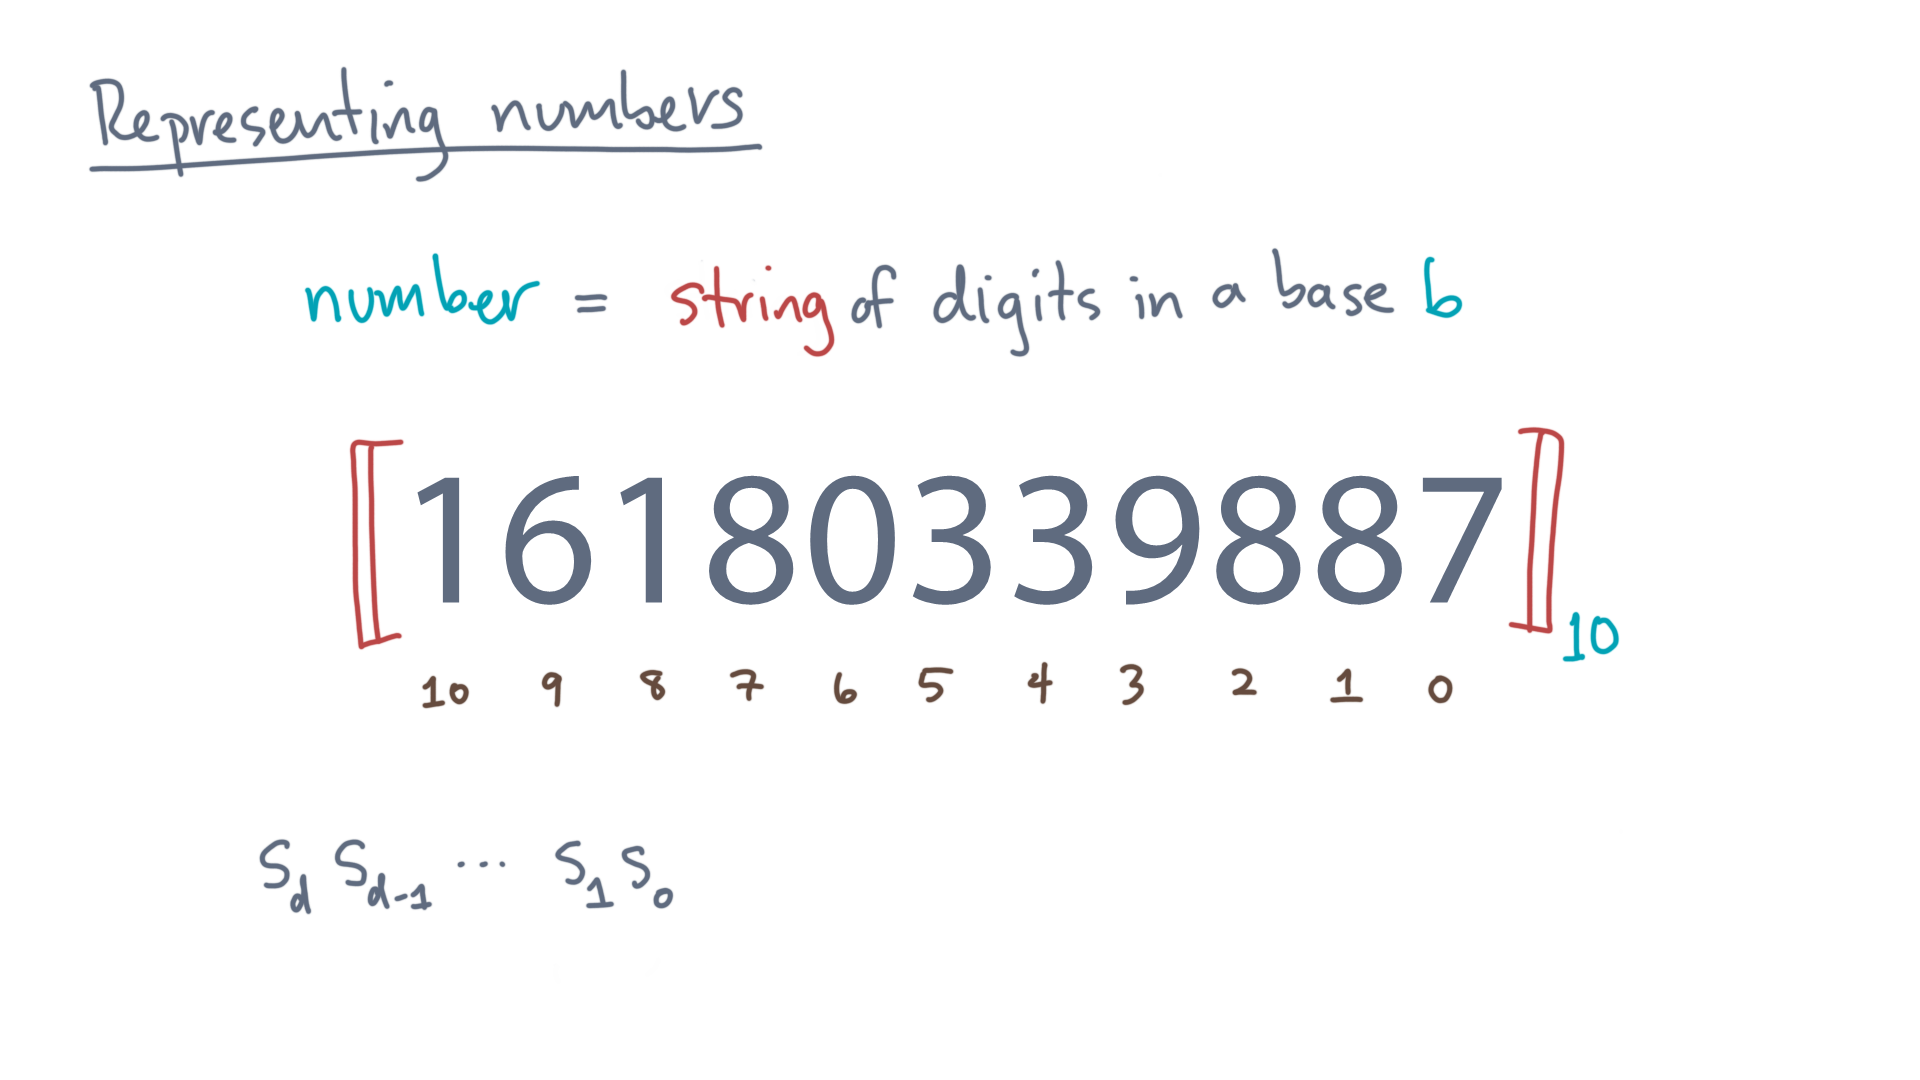 Representing numbers
number = string of digits in a base b
⟦16180339887⟧₁₀
10 9 8 7 6 5 4 3 2 1 0
S_d S_{d-1} ... S_1 S_0